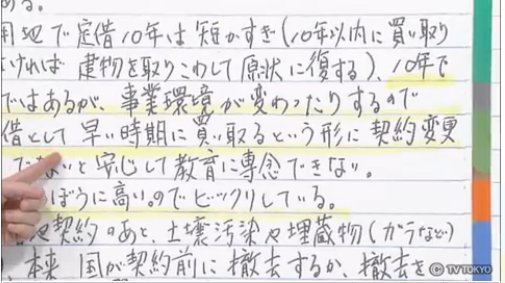 ある。
用地で定借10年は短かすぎ(10年以内に買い取り
なければ 建物を取りこわして原状に復する)、10年で
ではあるが、事業環境が変わったりするので
借として 早い時期に買い取るという形に契約変更
でないと安心して教育に専念できない。
ぼうに高いのでビックリしている。
や契約のあと、土壌汚染や埋蔵物(ガラなど)
本来 国が契約前に撤去するか、撤去を
© TV TOKYO